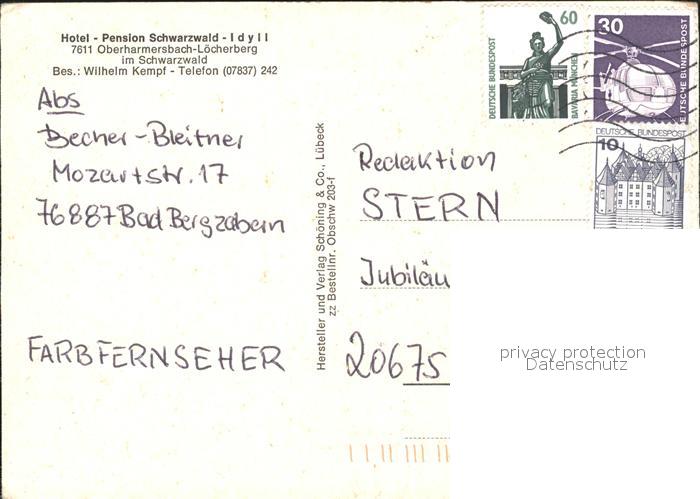 Hotel - Pension Schwarzwald - Idyll
7611 Oberharmersbach-Löcherberg
im Schwarzwald
Bes.: Wilhelm Kempf - Telefon (07837) 242
Abs
Becher-Bleitner
Mozartstr. 17
76887 Bad Bergzabern
FARBFERNSEHER
Hersteller und Verlag Schöning & Co., Lübeck
zz Bestellnr. Obschw 203-f
60
DEUTSCHE BUNDESPOST
BAVARIA MÜNCHEN
30
EUTSCHE BUNDESPOST
DEUTSCHE BUNDESPOST
10
Redaktion
STERN
Jubiläu
20675
privacy protection
Datenschutz